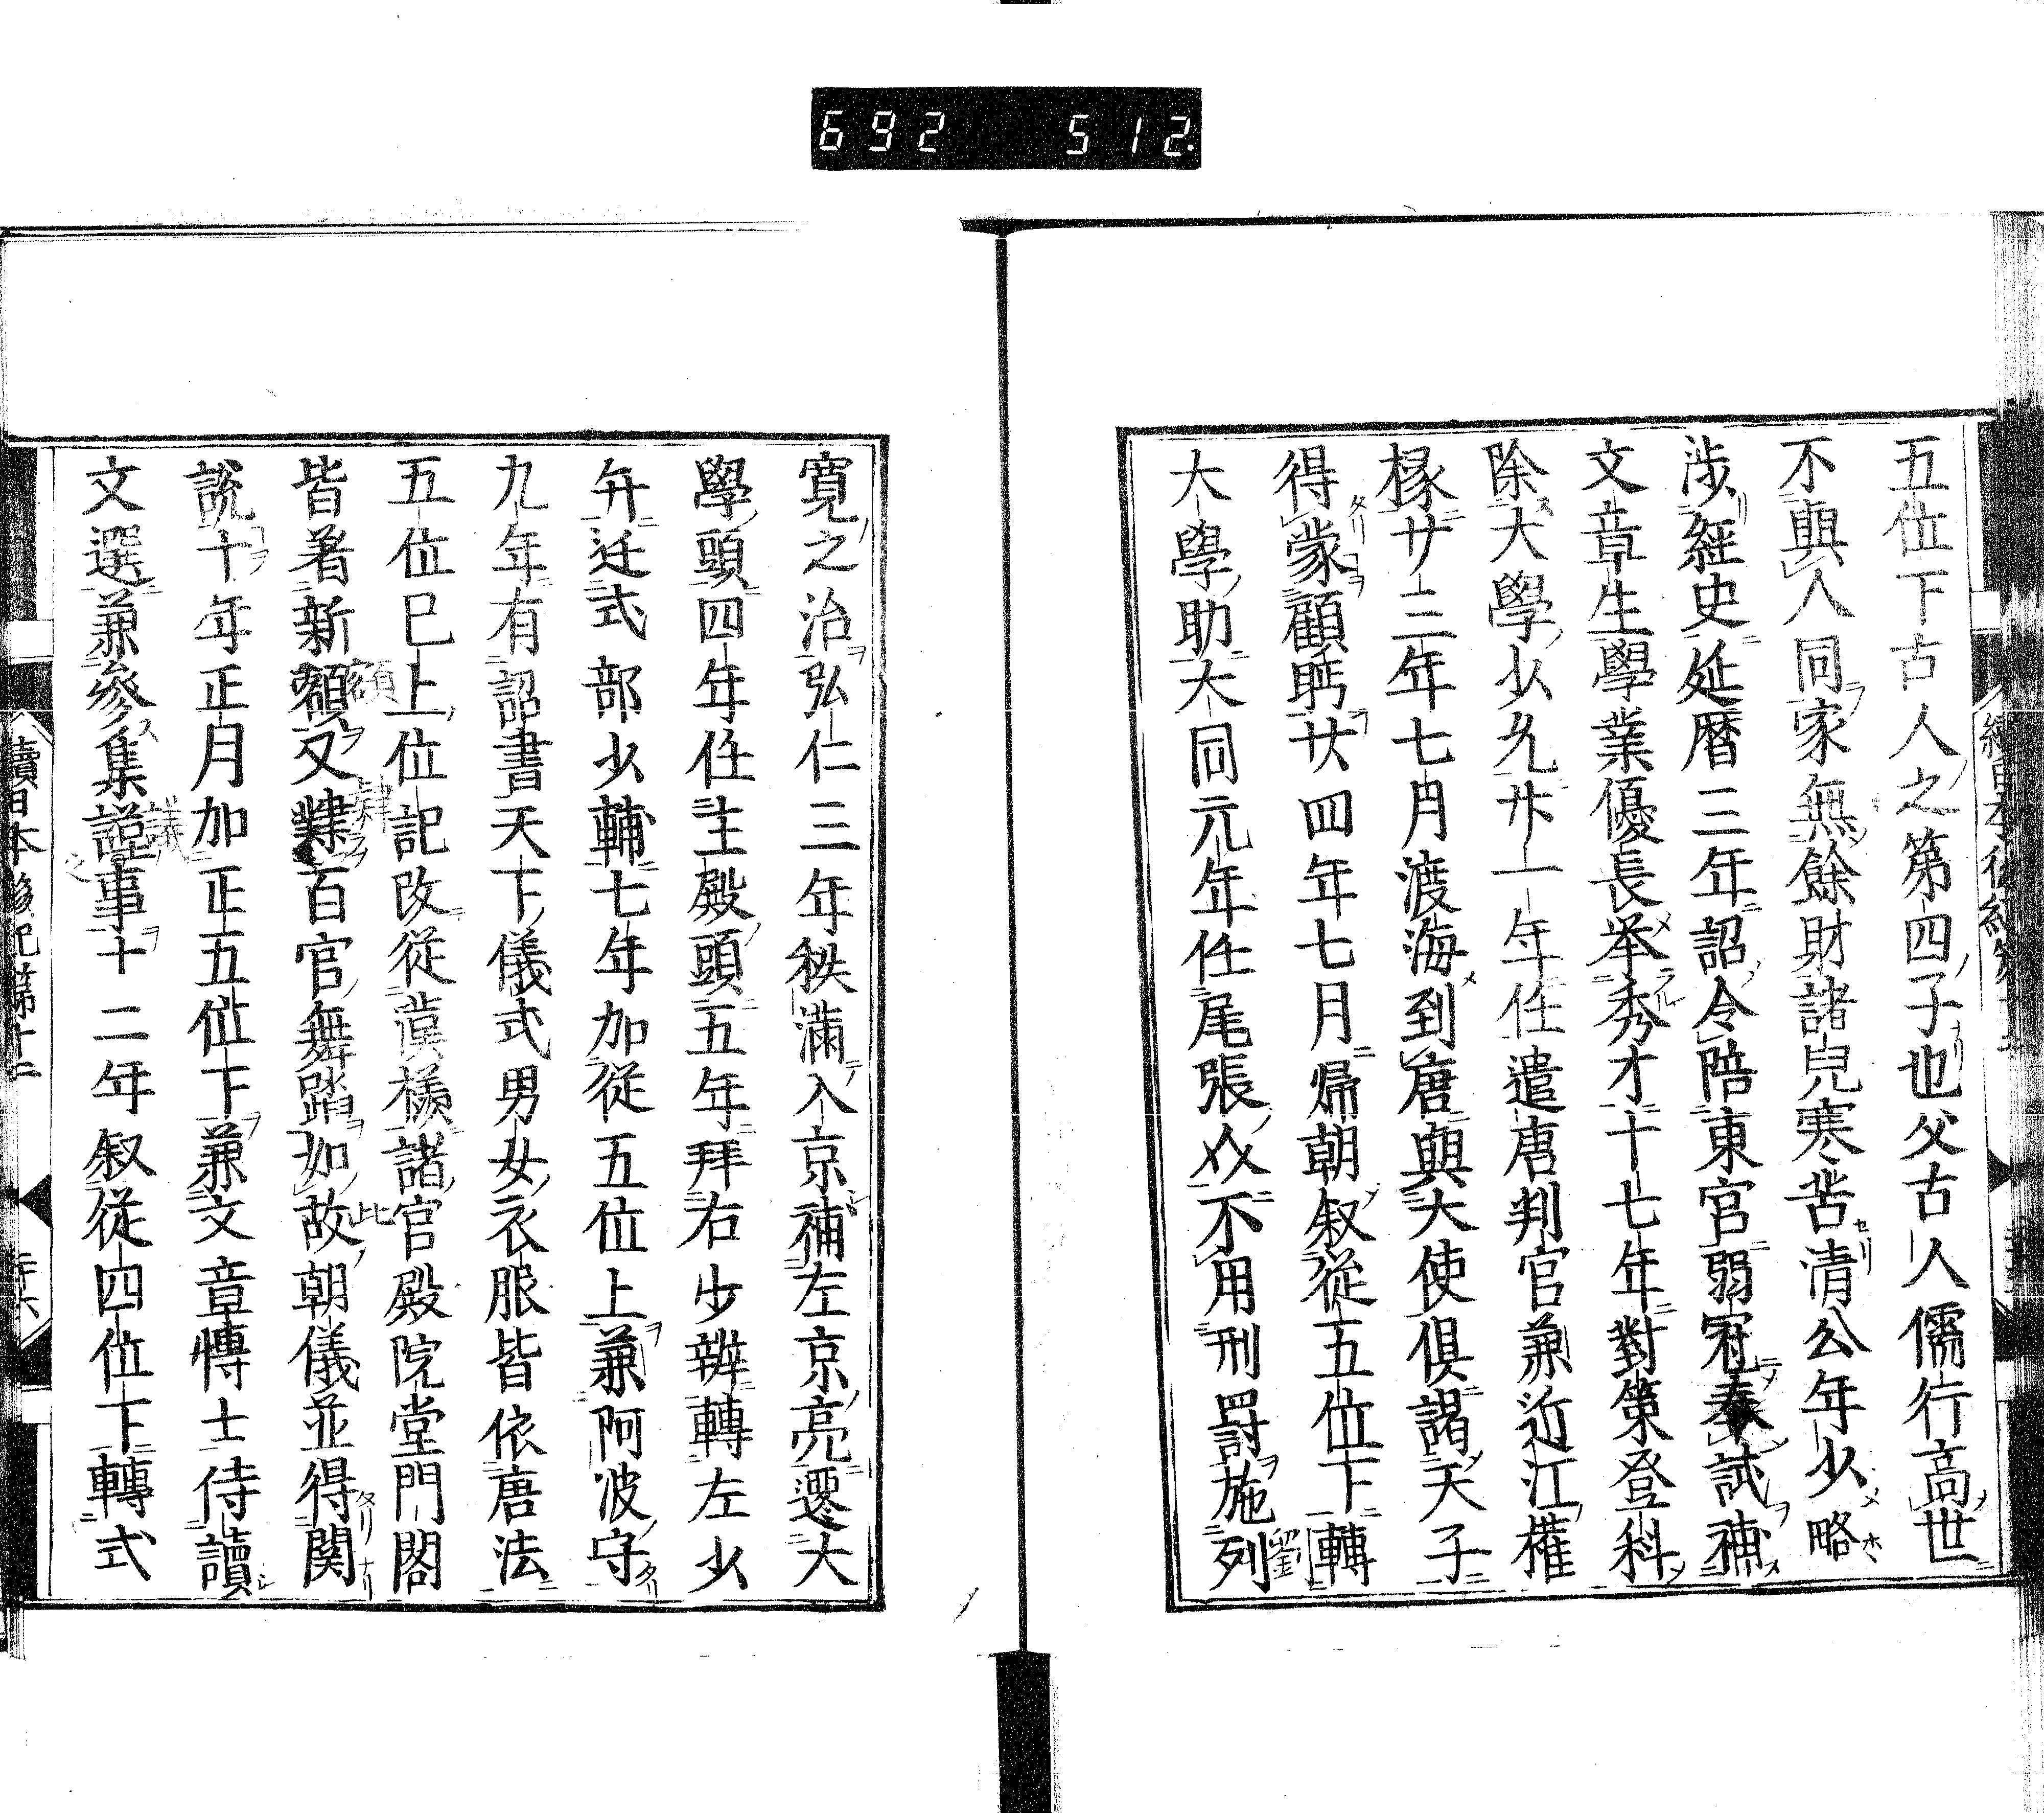 692 512
五位下古人之第四子也父古人儒行高世
不與人同家無餘財諸兒寒苦清公年少略
涉經史延暦三年詔令陪東宮弱冠奉試補
文章生學業優長举秀才十七年對策登科
除大學少允廿一年任遣唐判官兼近江權
椽廿三年七月渡海到唐與大使俱謁天子
得蒙顧眄廿四年七月帰朝叙從五位下轉
大學助大同元年任尾張介不用刑罸施劉
寛之治弘仁三年秩滿入京補左京亮遷大
學頭四年任主殿頭五年拜右少辨轉左少
弁迁式部少輔七年加從五位上兼阿波守
九年有詔書天下儀式男女衣服皆依唐法
五位已上位記改從漢樣諸宮殿院堂門閣
皆著新額又肄百官舞踏如此朝儀並得関
說十年正月加正五位下兼文章博士侍讀
文選兼參集議之事十二年叙從四位下轉式
續日本後紀第十二